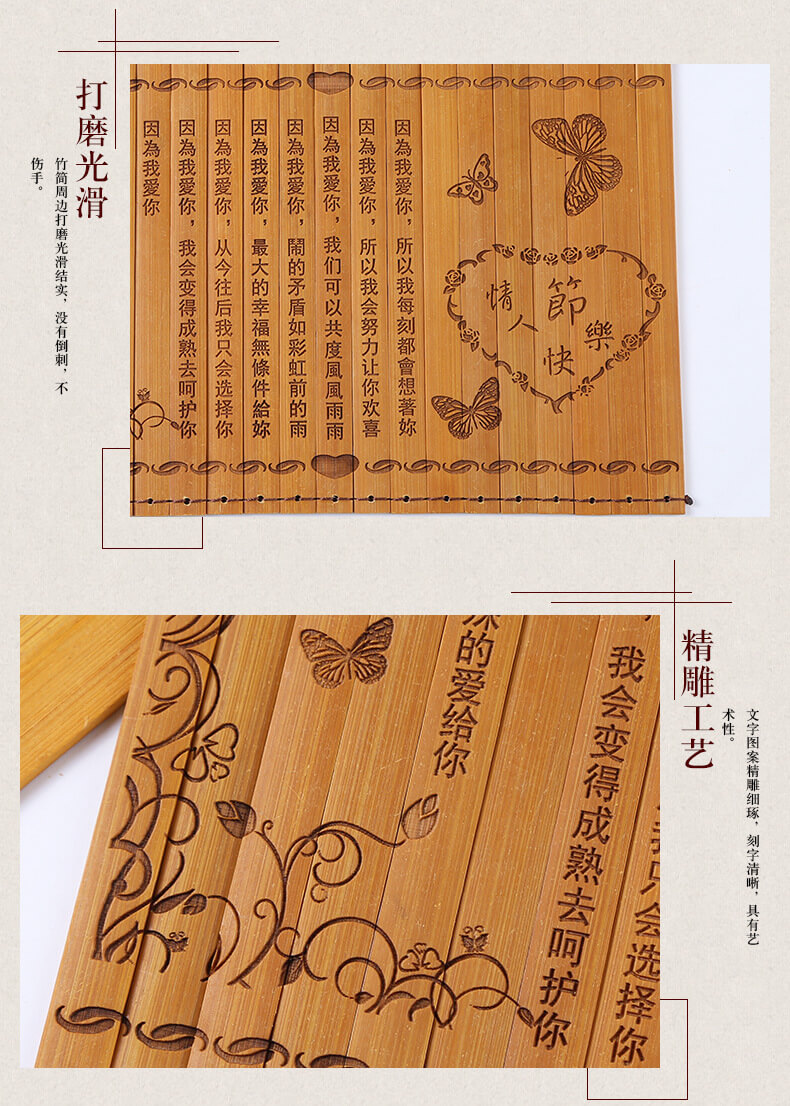 打磨光滑
竹简周边打磨光滑结实，没有倒刺，不
伤手。
情人
節
快
樂
因為我愛你，所以我每刻都會想著妳
因為我愛你，所以我会努力让你欢喜
因為我愛你，我们可以共度風風雨雨
因為我愛你，鬧的矛盾如彩虹前的雨
因為我愛你，最大的幸福無條件給妳
因為我愛你，从今往后我只会选择你
因為我愛你，我会变得成熟去呵护你
因為我愛你
精雕工艺
文字图案精雕细琢，刻字清晰，具有艺
术性。
只会选择你
，我会变得成熟去呵护你
的爱给你